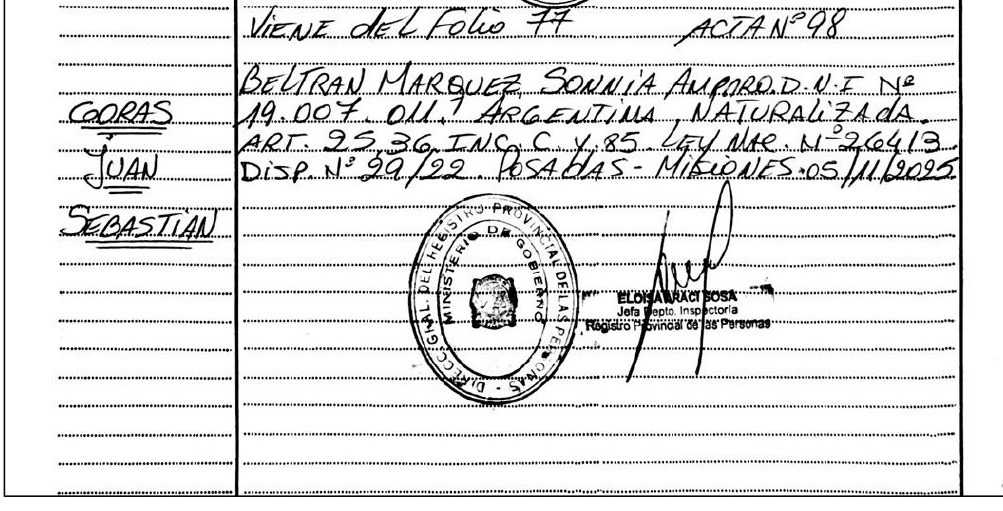 VIENE del Folio 77 ACTA Nº 98
BELTRAN MARQUEZ, SONNIA AMPARO. D.N.I Nº
19.007.011. ARGENTINA, NATURALIZADA.
ART. 25, 36, INC. C. Y. 85. LEY NAC. Nº 26413.
DISP. Nº 29/22. POSADAS - MISIONES. 05/11/2025
JUAN
SEBASTIAN
DIRECC. GRAL. DEL REGISTRO PROVINCIAL DE LAS PERSONAS -
MINISTERIO DE GOBIERNO
ELOISA ARACI SOSA
Jefa Depto. Inspectoria
Registro Provincial de las Personas